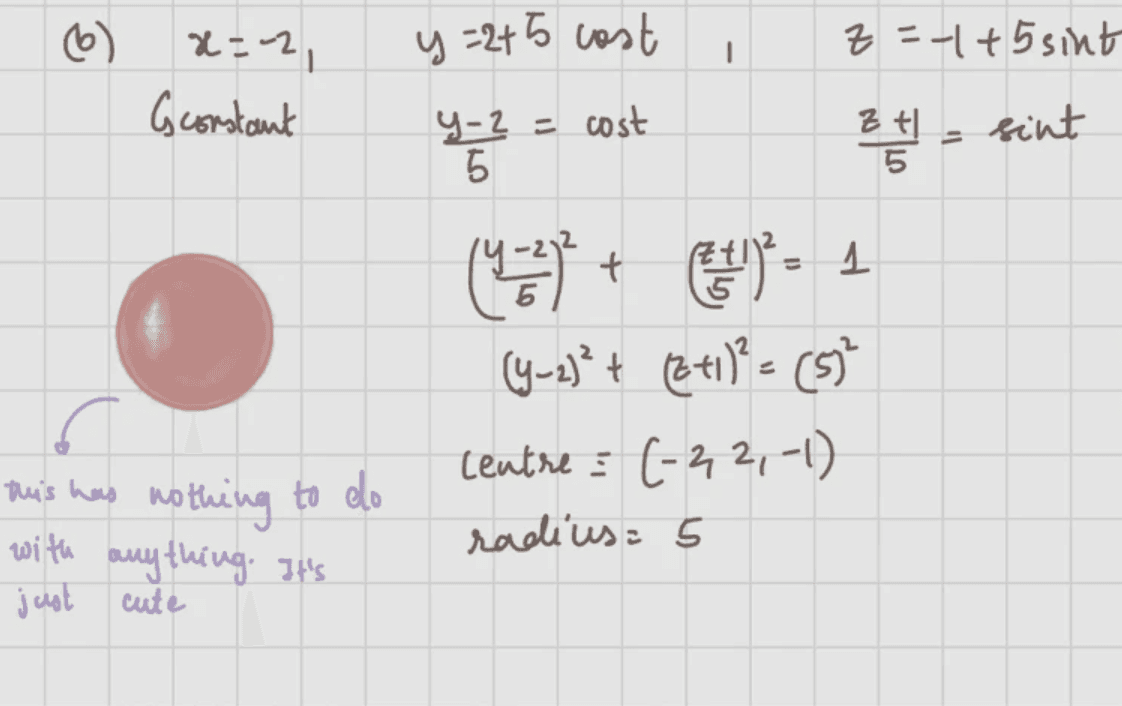 (b) x = -2, y = 2 + 5 cost , z = -1 + 5 sint
↳ constant (y-2)/5 = cost (z+1)/5 = sint
((y-2)/5)² + ((z+1)/5)² = 1
(y-2)² + (z+1)² = (5)²
centre = (-2, 2, -1)
radius = 5
this has nothing to do
with anything. It's
just cute